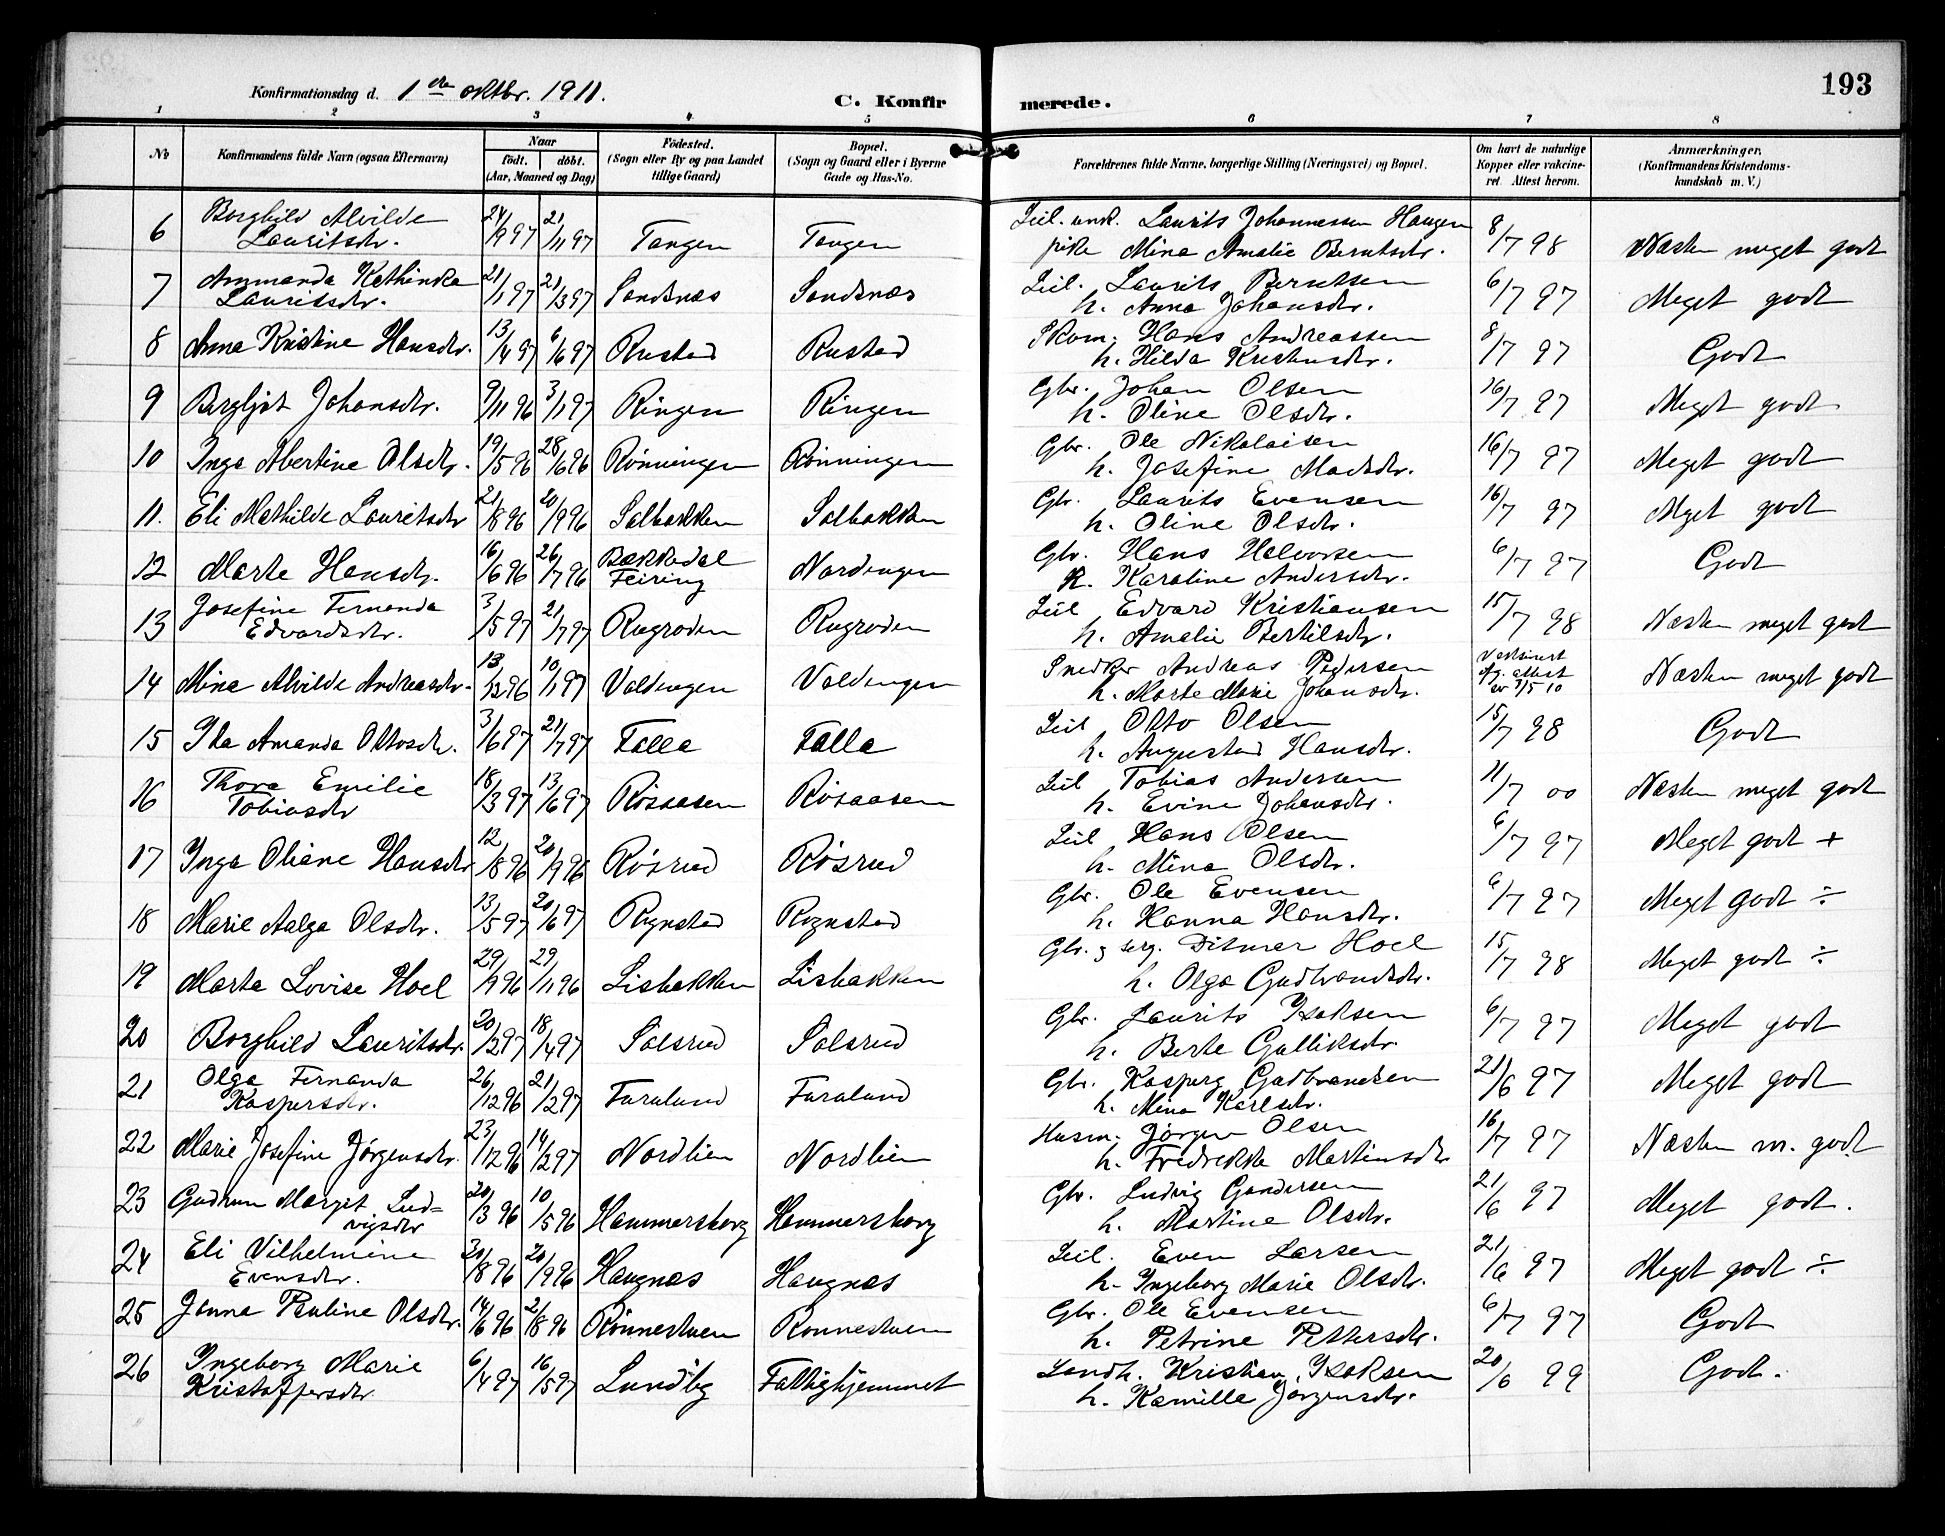 193
Konfirmationsdag d. 1ste oktbr. 1911.
C. Konfirmerede.
1 2 3 4 5 6 7 8
No
Konfirmandens fulde Navn (ogsaa Efternavn)
Naar
födt. döbt.
(Aar, Maaned og Dag)
Födested.
(Sogn eller By og paa Landet
tillige Gaard)
Bopæl.
(Sogn og Gaard eller i Byerne
Gade og Hus-No.
Forældrenes fulde Navne, borgerlige Stilling (Næringsvei) og Bopæl.
Om havt de naturlige
Kopper eller vakcine-
ret. Attest herom.
Anmærkninger.
(Konfirmandens Kristendoms-
kundskab m. V.)
6 Borghild Alvilde Lauritsdtr. 24/9 97 21/11 97 Tangen Tangen Leil. unk. Laurits Johannessen Haugen 8/7 98 Næsten meget godt
pike Mina Amalie Berntsdtr.
7 Ammanda Kathinka Lauritsdtr. 21/1 97 21/3 97 Sandsnæs Sandsnæs Leil. Laurits Berntsen 6/7 97 Meget godt
h. Anna Johansdtr.
8 Anna Kristine Hansdtr. 13/4 97 6/6 97 Rustad Rustad Skom. Hans Andreassen 8/7 97 Godt
h. Hilda Kristensdtr.
9 Bergljot Johansdtr. 9/11 96 3/1 97 Ringen Ringen Gbr. Johan Olsen 16/7 97 Meget godt
h. Oline Olsdtr.
10 Inga Albertine Olsdtr. 19/5 96 28/6 96 Rönningen Rönningen Gbr. Ole Nikolaisen 16/7 97 Meget godt
h. Josefine Madsdtr.
11. Eli Mathilde Lauritsdtr 21/8 96 20/9 96 Solbakken Solbakken Gbr. Laurits Evensen 16/7 97 Meget godt
h. Oline Olsdtr.
12 Marte Hansdtr. 16/6 96 26/7 96 Bækkedal Feiring Nordengen Gbr. Hans Halvorsen 6/7 97 Godt
k. Karoline Andersdtr.
13 Josefine Fernanda Edvardsdtr. 3/5 97 21/7 97 Rugroden Rugroden Leil Edvard Kristiansen 15/7 98 Næsten meget godt
h. Amalie Bertilsdtr.
14 Mina Alvilde Andreasdtr. 13/12 96 10/1 97 Valdengen Valdengen Snedker Andreas Pedersen Vaksinert
h. Marte Marie Johansdtr. attest
7/5 10 Næsten meget godt
15 Ida Amanda Ottosdtr. 3/6 97 21/7 97 Falla Falla Leil Otto Olsen 15/7 98 Godt
h. Augusta Hansdtr.
16 Thora Emilie Tobiasdtr 18/3 97 13/6 97 Rösaasen Rösaasen Leil Tobias Andersen 11/7 00 Næsten meget godt
h. Evine Johansdtr.
17 Inga Oliane Hansdtr 12/8 96 20/9 96 Rösrud Rösrud Leil Hans Olsen 6/7 97 Meget godt +
h. Mina Olsdtr.
18 Marie Aalga Olsdtr. 13/5 97 20/6 97 Rognstad Rognstad Gbr. Ole Evensen 6/7 97 Meget godt ÷
h. Hanna Hansdtr.
19 Marta Lovise Hoel 29/9 96 29/11 96 Lisbakken Lisbakken Gbr. og Ditmar Hoel 15/7 98 Meget godt ÷
h. Olga Gudbrandsdtr.
20 Borghild Lauritsdtr. 20/2 97 18/4 97 Solsrud Solsrud Gbr. Laurits Isaksen 6/7 97 Meget godt
h. Berte Gulliksdtr.
21 Olga Fernanda Kaspersdtr. 26/12 96 21/2 97 Furulund Furulund Gbr. Kasper Gudbrandsen 21/6 97 Meget godt
h. Mina Karlsdtr.
22 Marie Josefine Jörgensdtr. 23/12 96 14/2 97 Nordlien Nordlien Husm. Jörgen Olsen 16/7 97 Næsten m. godt
h. Fredrikka Martinsdtr
23 Gudrun Margit Lud=
vigsdtr 20/3 96 10/5 96 Hammersborg Hammersborg Gbr. Ludvig Gundersen 21/6 97 Meget godt.
h. Martine Olsdtr.
24 Eli Vilhelmine Evensdtr. 20/8 96 20/9 96 Haugnæs Haugnæs Leil. Even Larsen 21/6 97 Meget godt ÷
h. Ingeborg Marie Olsdtr.
25 Janna Pauline Olsdtr. 14/6 96 2/8 96 Rönnestuen Ronnestuen Gbr. Ole Evensen 6/7 97 Godt
h. Petrine Pettersdtr.
26 Ingeborg Marie Kristoffersdtr 6/4 97 16/5 97 Lundby Fattighjemmet Landh. Kristian Isaksen 20/6 99 Godt.
h. Kamilla Jörgensdtr.